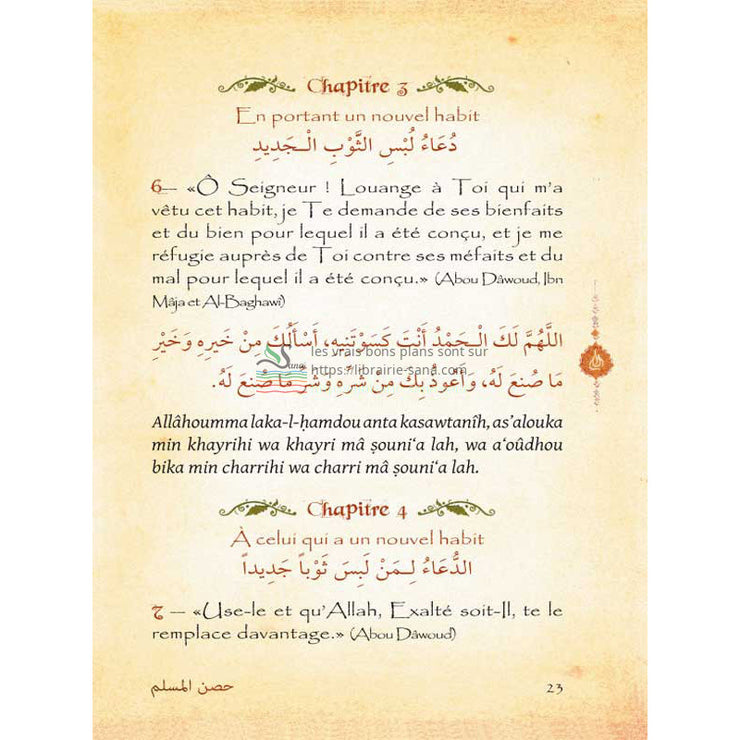 Chapitre 3
En portant un nouvel habit
دُعَاءُ لُبْسِ الثَّوْبِ الْـجَدِيدِ
6– «Ô Seigneur ! Louange à Toi qui m'a
vêtu cet habit, je Te demande de ses bienfaits
et du bien pour lequel il a été conçu, et je me
réfugie auprès de Toi contre ses méfaits et du
mal pour lequel il a été conçu.» (Abou Dâwoud, Ibn
Mâja et Al-Baghawî)
اللَّهُمَّ لَكَ الْـحَمْدُ أَنْتَ كَسَوْتَنِيهِ، أَسْأَلُكَ مِنْ خَيرِهِ وَخَيْرِ
les vrais bons plans sont sur
مَا صُنِعَ لَهُ، وَأَعُوذُ بِكَ مِنْ شَرِّهِ وَشَرِّ مَا صُنِعَ لَهُ.
https://librairie-sana.com
Sana
Allâhoumma laka-l-ḥamdou anta kasawtanîh, as'alouka
min khayrihi wa khayri mâ ṣouni‘a lah, wa a‘oûdhou
bika min charrihi wa charri mâ ṣouni‘a lah.
Chapitre 4
À celui qui a un nouvel habit
الدُّعَاءُ لِـمَنْ لَبِسَ ثَوْباً جَدِيداً
7 – «Use-le et qu'Allah, Exalté soit-Il, te le
remplace davantage.» (Abou Dâwoud)
حصن المسلم
23